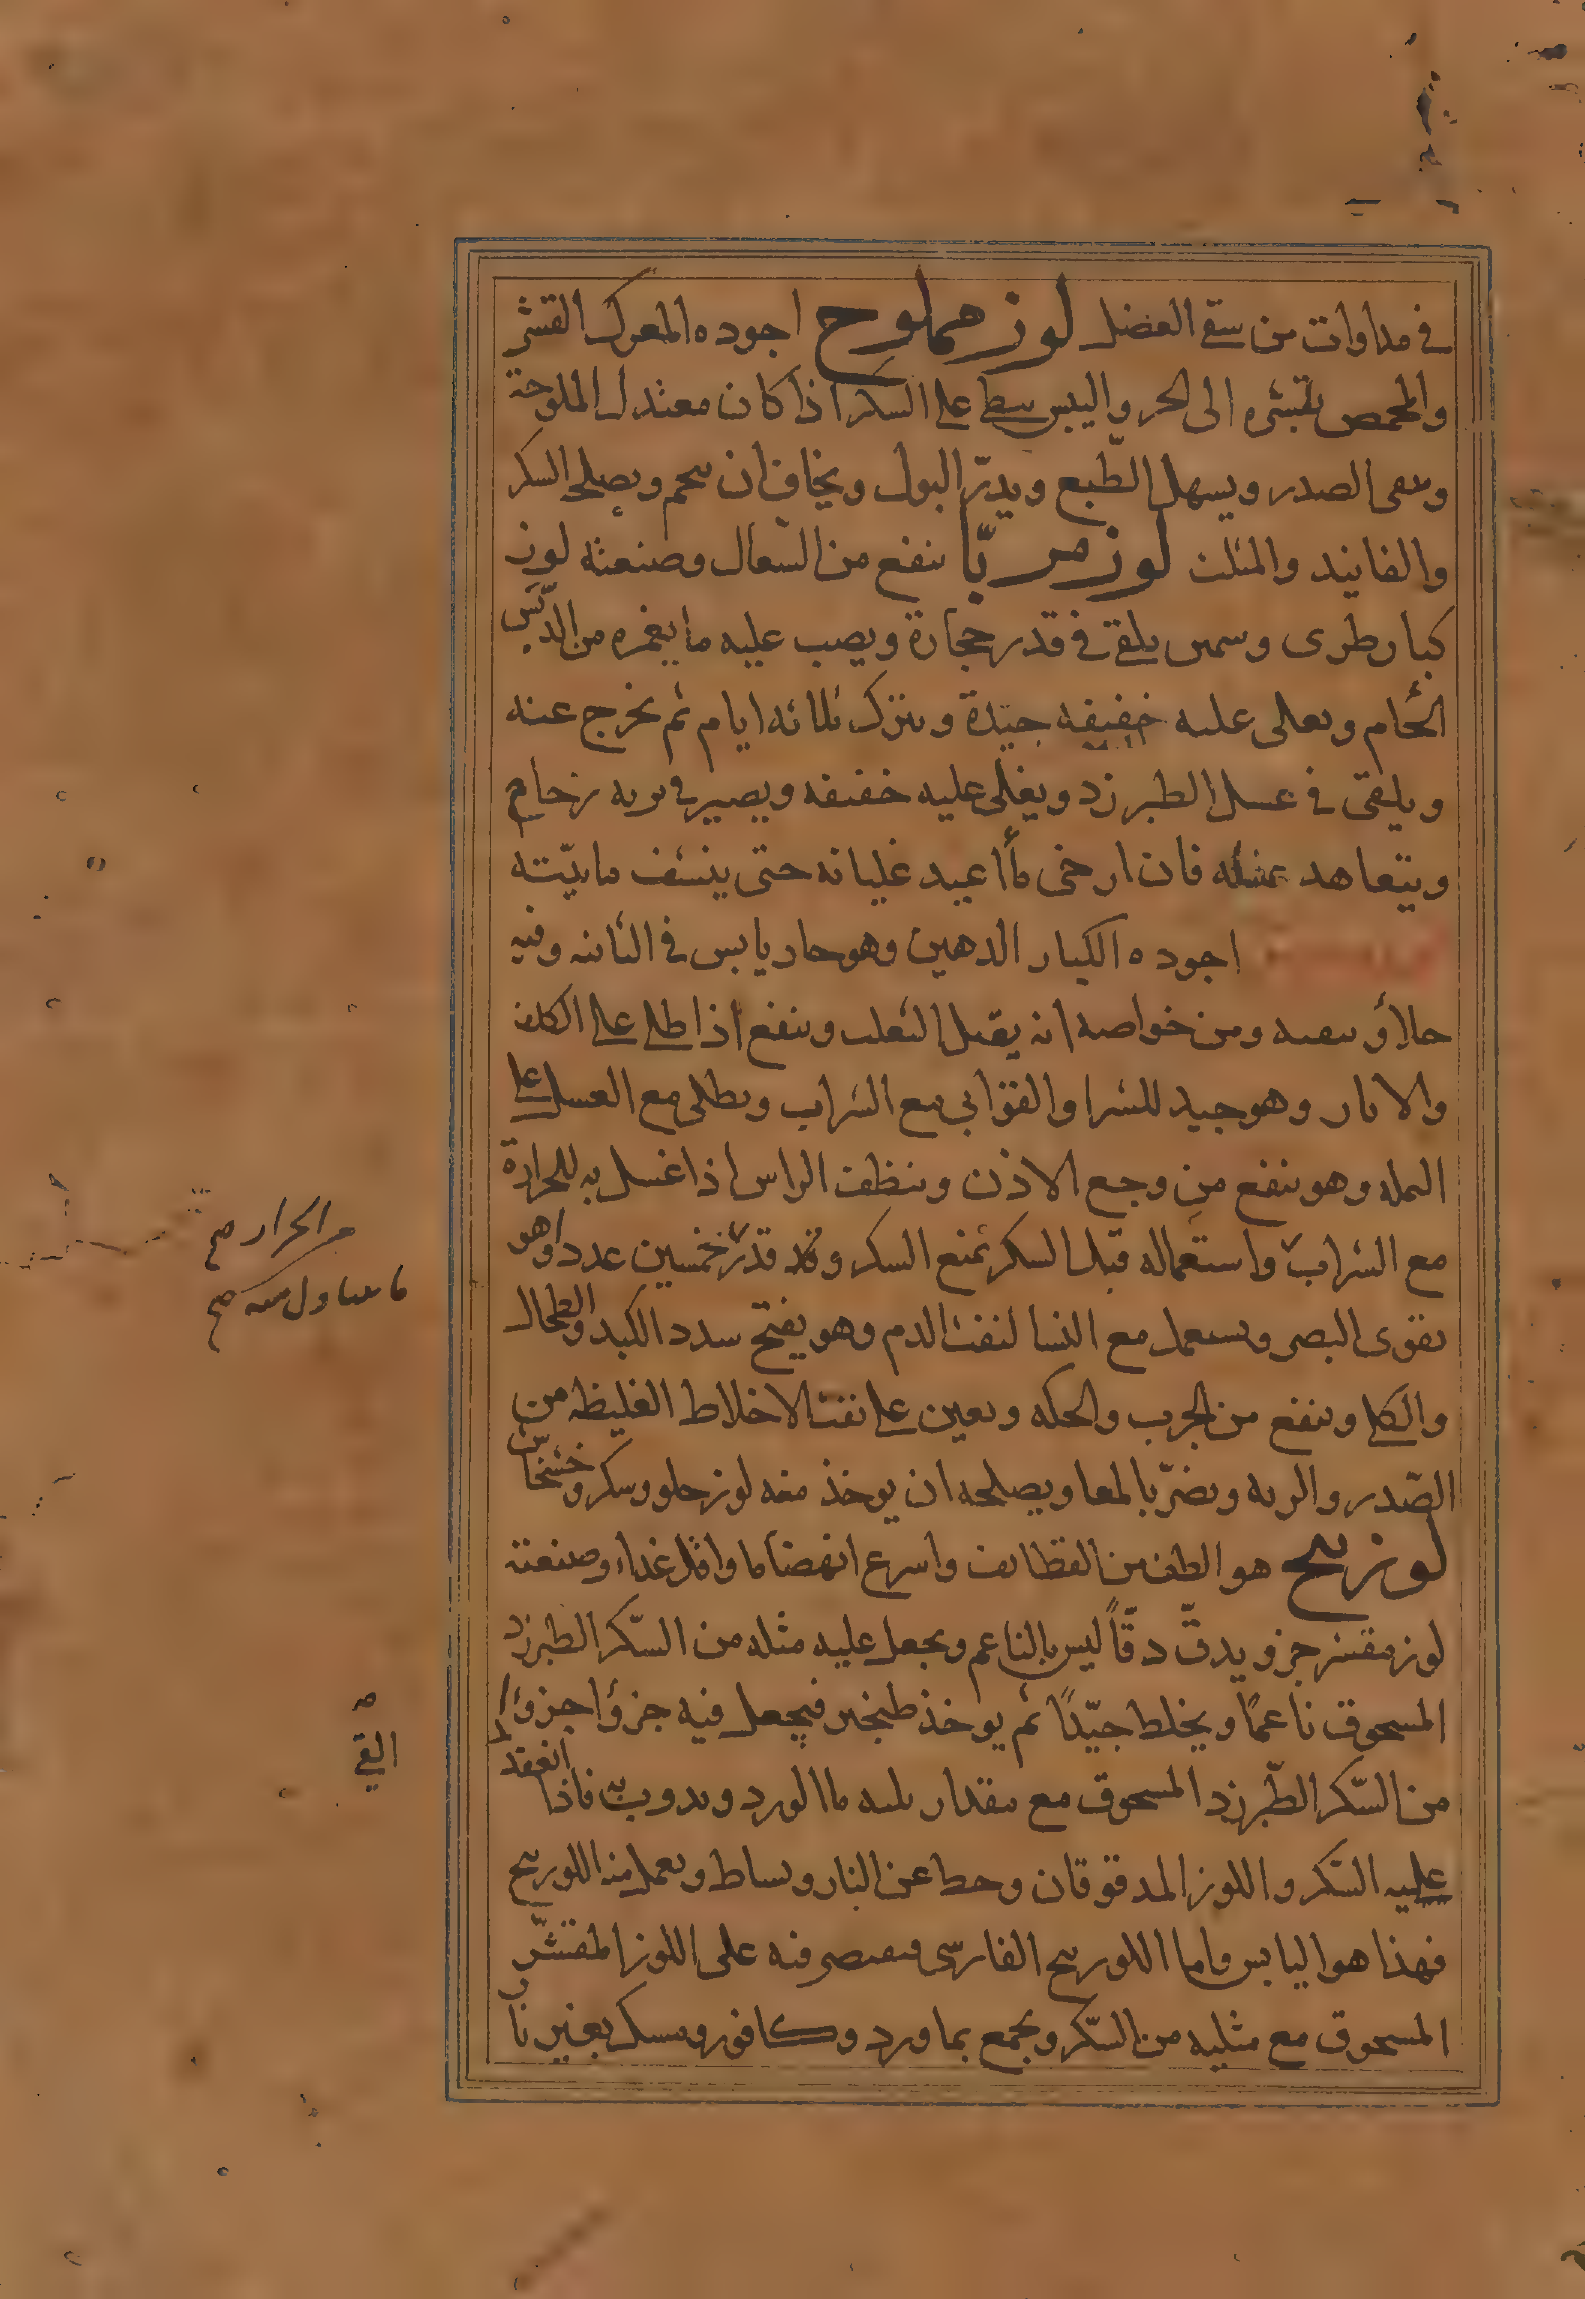 في مداوات من سقى العضل لوز مملوح اجوده المعرك القشر
والمحمص بقشره الى الحر واليبس يبطى على السكر اذا كان معتدل الملوحة
وينقى الصدر ويسهل الطبع ويدرّ البول ويخاف ان يحم ويصلحه السكر
والفانيد والمثلث لوز مربّا ينفع من السعال وصنعته لوز
كبار طرى وسمين يلقى في قدر حجارة ويصب عليه ما يغمره من الدبس
الخام ويغلى عليه خفيفه جيدة ويترك ثلاثه ايام ثم يخرج عنه
ويلقى في عسل الطبرزد ويغلى عليه خفيفه ويصير في برنيه زخام
ويتعاهد عسله فان ارخى ماأ اعيد غليانه حتى ينشف مائيّته
اجوده الكبار الدهين وهو حار يابس في الثانيه وفيه
جلاؤ وتنقيه ومن خواصه انه يقتل الثعلب وينفع اذا طلى على الكلف
والاثار وهو جيد للشرا والقوابي مع الشراب ويطلى مع العسل على
النمله وهو ينفع من وجع الاذن وينظف الراس اذا غسل به للحرارة
مع الشراب واستعماله قبل السكر تمنع السكر وقد قدر خمسين عددا وهو
يقوى البصر ويستعمل مع النشا لنفث الدم وهو يفتح سدد الكبد والطحال
والكلى وينفع من الجرب والحكه ويعين على نفث الاخلاط الغليظه من
الصّدر والريه ويضرّ بالمعا ويصلحه ان يوخذ معه لوز حلو وسكر وخشخاش
لوزينج هو الطف من القطايف واسرع انهضاما واقل غذاء وصنعته
لوز مقشر جزو يدقّ دقّاً ليس بالناعم ويجعل عليه مثله من السّكر الطبرزد
المسحوق ناعمًا ويخلط جيّدًا ثم يوخذ طنجير فيجعل فيه جزؤا جزؤا
من السّكر الطّبرزد المسحوق مع مقدار ثلثه ماالورد ويدوب فاذا انعقد
عليه السّكر واللوز المدقوقان وحط عن النار ويساط ويعمل منه اللوزينج
فهذا هو اليابس واما اللوزينج الفارسى فيقتصر فيه على اللوز المقشّر
المسحوق مع مثليه من السّكر ويجمع بماورد وكافور ومسك بغير نار
والحرار صح
ما يتناول منه صح
القي